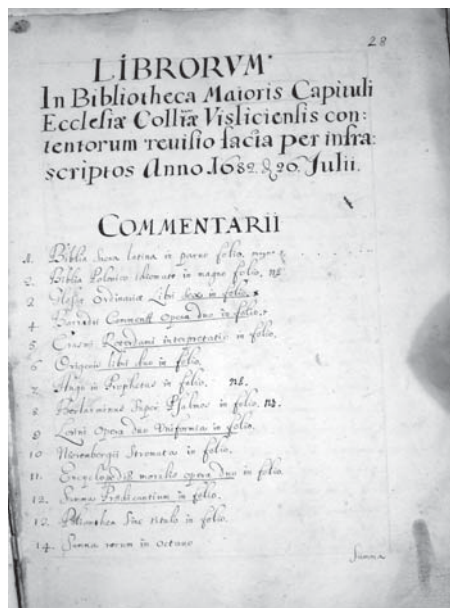 28
LIBRORVM
In Bibliotheca Maioris Capituli
Ecclesiæ Colliæ Visliciensis con:
tentorum reuisio facta per infra:
scriptos Anno 1682. 20. Julii.
COMMENTARII
1. Biblia Sacra latina in paruo folio.
2. Biblia Polonico idiomate in magno folio. ns.
3. Glossa Ordinaria Libri sex in folio.
4. Barradii Comment opera duo in folio.
5. Erasmi Roterdami interpretatio in folio.
6. Origenis libri duo in folio.
7. Hugo in Prophetas in folio. ns.
8. Bellarminus Super Psalmos in folio. ns.
9. opera duo Uniformia in folio.
10 Nierembergii Stromata in folio.
11. Encyclopediæ moralis opera duo in folio.
12. Summa Prædicantium in folio.
13. Polianthea Sine titulo in folio.
14. Summa rerum in octauo
Summa